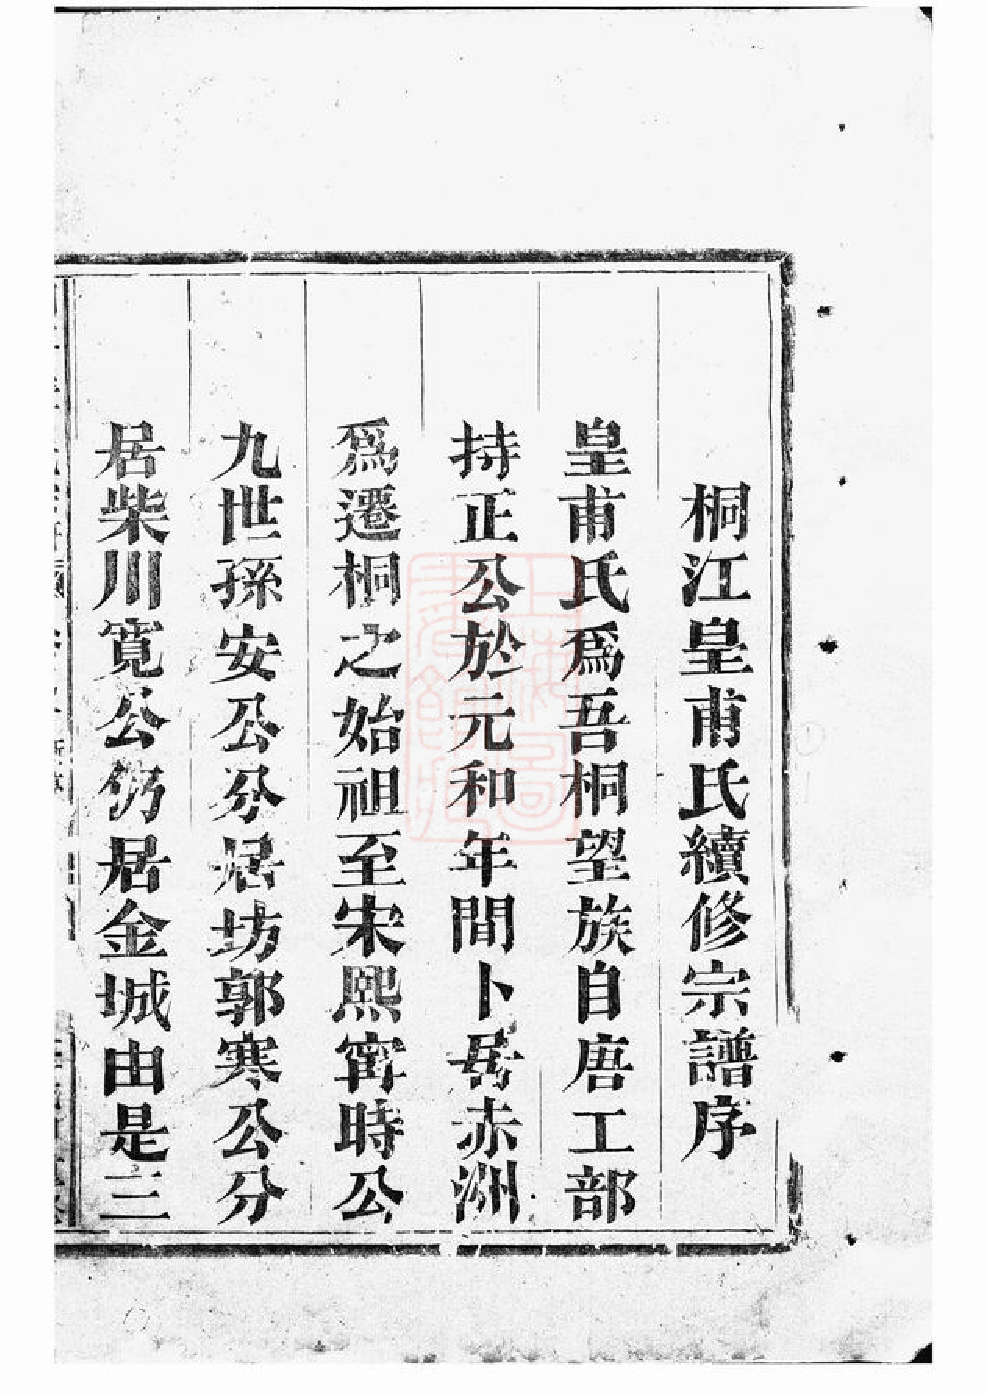 桐江皇甫氏續修宗譜序
皇甫氏爲吾桐望族自唐工部
持正公於元和年間卜居赤洲
爲遷桐之始祖至宋熙甯時公
九世孫安公分居坊郭寒公分
居柴川寬公仍居金城由是三